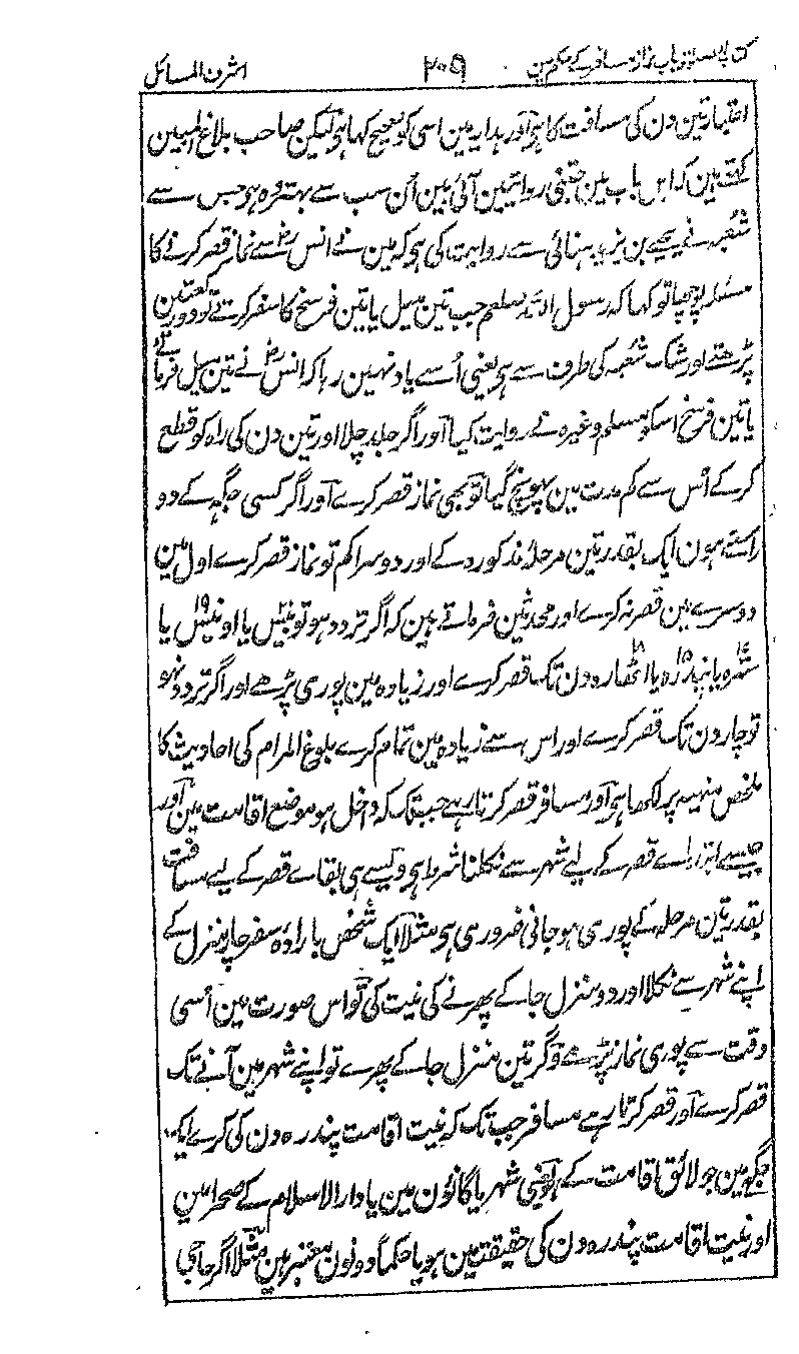 کتاب الصلوٰۃ باب نماز مسافر کے حکم مین ۲۰۹ اشرف المسائل
اعتبار تین دن کی مسافت کا ہی اور ہدایہ مین اسی کو صحیح کہا ہی لیکن صاحب بلاغ المبین
کہتے ہین کہ اس باب مین جتنی روایتین آئی ہین اُن سب سے بہتر وہ ہو جس سے
شعبہ نے یحیے بن یزید ہنائی سے روایت کی ہو کہ مین نے انس رضؓ سے نماز قصر کرنے کا
مسئلہ پوچھا تو کہا کہ رسول اللہ صلعم جب تین میل یا تین فرسخ کا سفر کرتے تو دو رکعتین
پڑھتے اور شک شعبہ کی طرف سے ہی یعنی اُسے یاد نہین رہا کہ انس رضؓ نے تین میل فرمائے
یا تین فرسخ اسکو مسلم وغیرہ نے روایت کیا اور اگر جلد چلا اور تین دن کی راہ کو قطع
کر کے اُس سے کم مدت مین پہونچ گیا تو بھی نماز قصر کرے اور اگر کسی جگہ کے دو
راستے ہون ایک بقدر تین مرحلہ مذکور د کے اور دوسرا کم تو نماز قصر کرے اول مین
دوسرے مین قصر نہ کرے اور محدثین فرماتے ہین کہ اگر تردد ہو تو بیس یا اونیس ۱۹ یا
سترہ یا پندرہ ۱۵ یا اٹھارہ ۱۸ دن تک قصر کرے اور زیادہ مین پوری پڑھے اور اگر تردد نہو
تو چار دن تک قصر کرے اور اس سے زیادہ مین تمام کرے بلوغ المرام کی احادیث کا
ملخص منہیہ پر لکھا ہی اور مسافر قصر کرتا رہے جب تک کہ داخل ہو موضع اقامت مین اور
جیسے ابتداے قصر کے لیے شہر سے نکلنا شرط ہی ویسے ہی بقاے قصر کے لیے مسافت
بقدر تین مرحلہ کے پوری ہو جانی ضروری ہی مثلاً ایک شخص بارادۂ سفر چار منزل کے
اپنے شہر سے نکلا اور دو منزل جا کے پھرنے کی نیت کی تو اس صورت مین اُسی
وقت سے پوری نماز پڑھے وگر تین منزل جا کے پھرے تو اپنے شہر مین آنے تک
قصر کرے اور قصر کرتا رہے مسافر جب تک کہ نیت اقامت پندرہ دن کی کرے ایک
جگہ مین جو لائق اقامت کے ہو یعنی شہر یا گانؤن مین یا دار الاسلام کے صحرا مین
اور نیت اقامت پندرہ دن کی حقیقت مین ہو یا حکماً دونون معتبر ہین مثلاً اگر حاجی